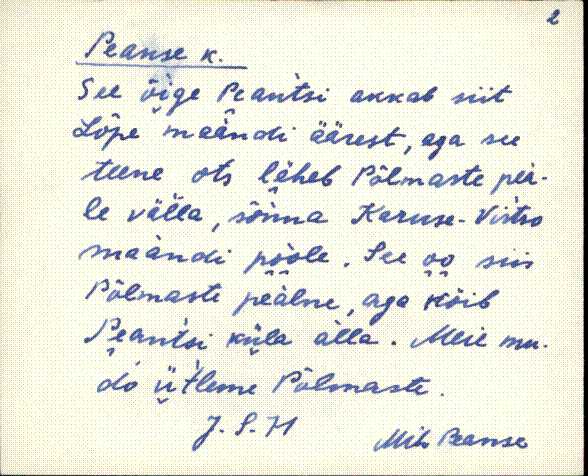 2
Peanse k.
See õige Peantsi akkab siit
Lõpe maandi äärest, aga see
teene ots läheb Põlmaste peä-
le välla, sõnna Karuse-Virtso
maandi poole. See oo siis
Põlmaste peälne, aga köib
Peantsi küla alla. Meie mu-
do ütleme Põlmaste.
J. S. H
Mih. Peanse